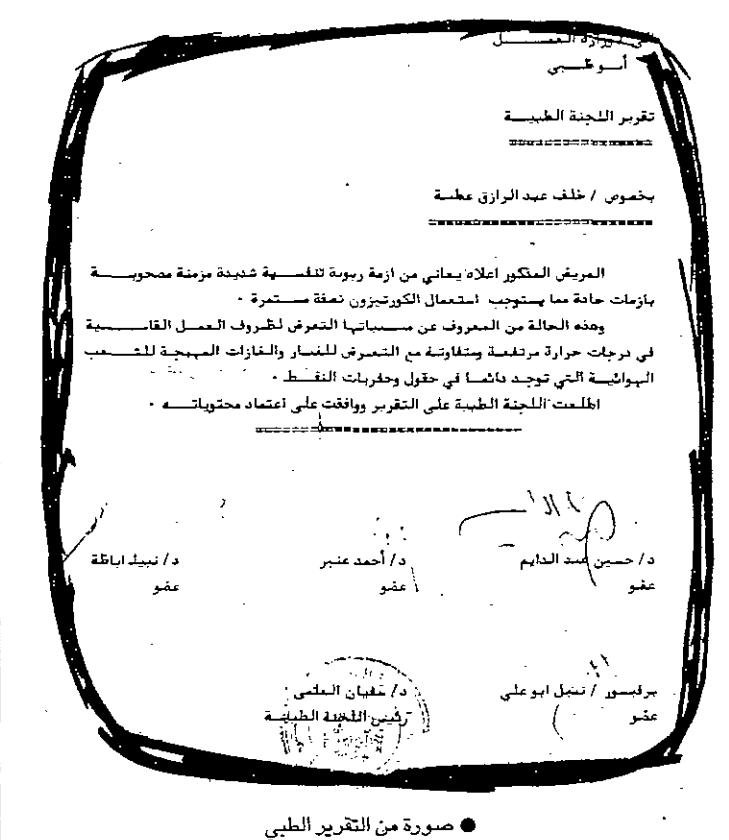 وزارة العمــــل
أبــو ظــبي
تقرير اللجنة الطبيــة
بخصوص / خلف عبد الرازق عطيـة
المريض المذكور اعلاه يعاني من ازمة ربوية تنفســية شديدة مزمنة مصحوبــة
بازمات حادة مما يستوجب استعمال الكورتيزون بصفة مستمرة ٠
وهذه الحالة من المعروف عن مسبباتها التعرض لظروف العمـل القاســية
في درجات حرارة مرتفعـة ومتفاوتـة مع التعـرض للغبـار والغازات المهيجة للشـعب
الهوائيـة التي توجد دائمـا في حقول وحفريات النفـط ٠
اطلعت اللجنة الطبية على التقرير ووافقت على اعتماد محتوياتــه ٠
د/ حسين عبد الدايم
د/ أحمد عنبر
د/ نبيل اباظة
عضو
عضو
عضو
برفيسور / نبيل ابو علي
د/ سفيان العلمي
عضو
رئيس اللجنة الطبيـة
● صورة من التقرير الطبي